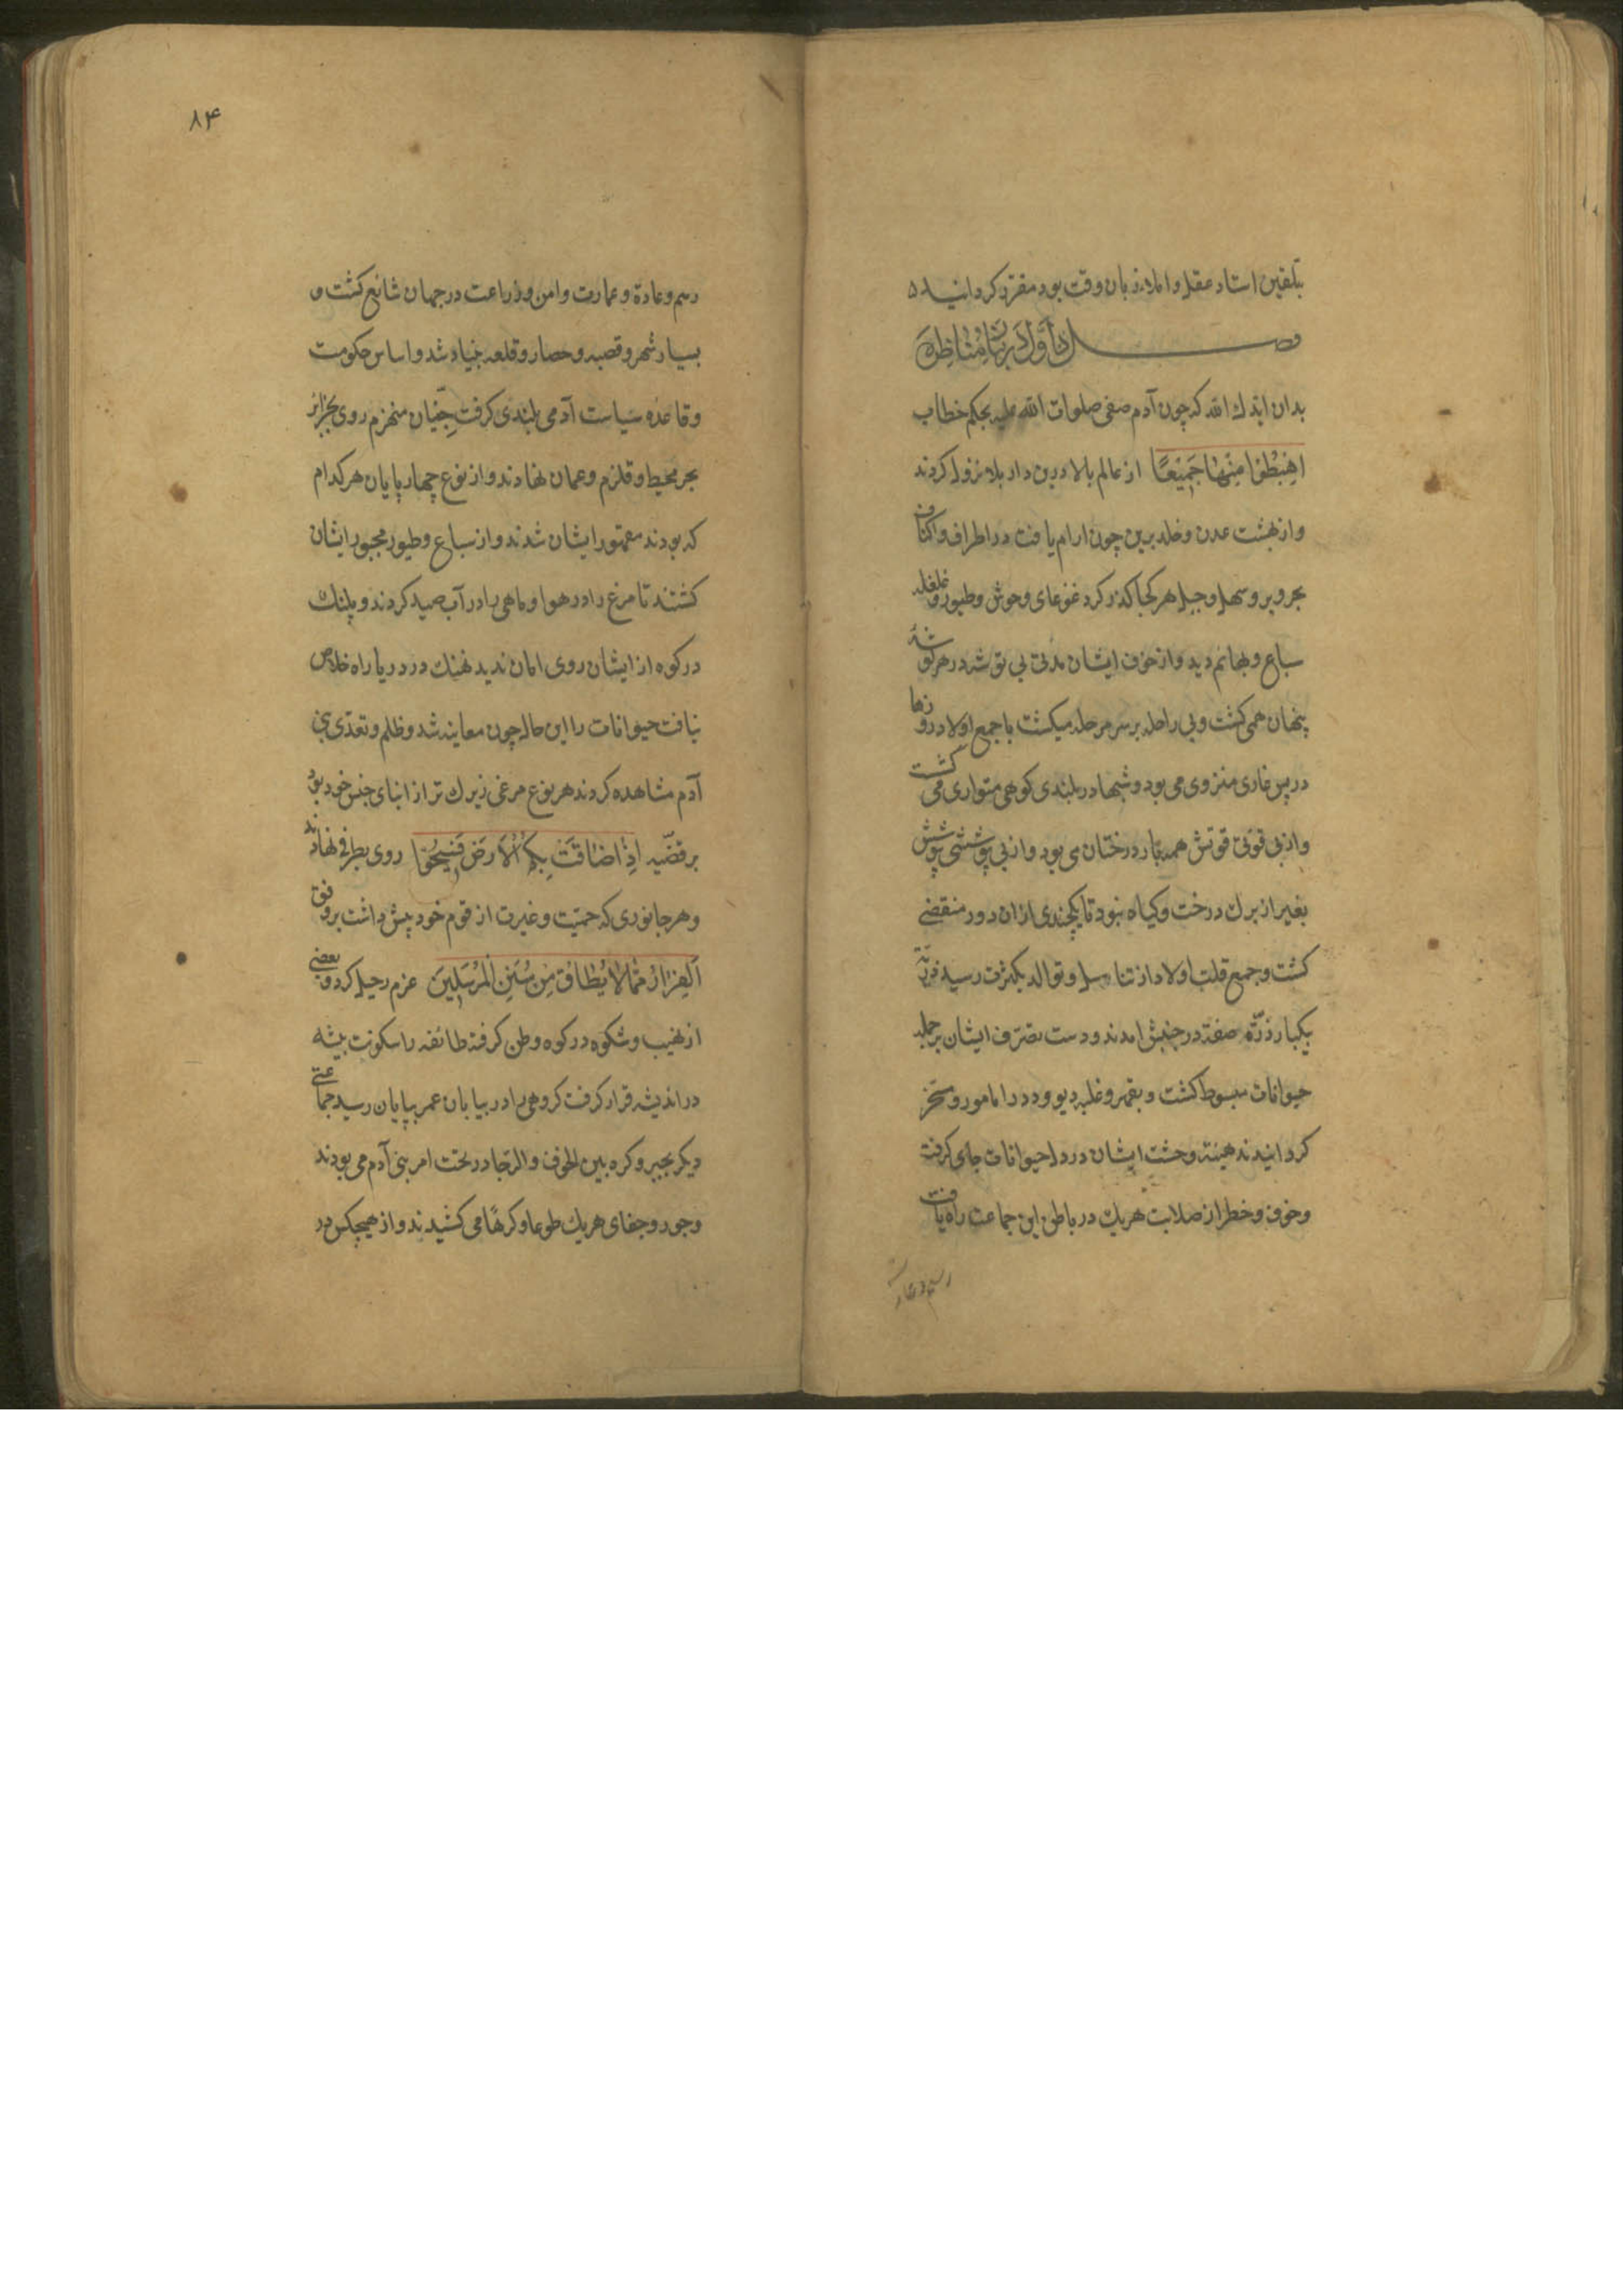 بتلقین استاد عقل و املاء زبان وقت بود مقرر کردانید
فصل اول در بنای مناظره
بدان ایدك الله که چون آدم صفی صلوات الله علیه بحکم خطاب
اهبطوا منها جمیعا از عالم بالا درین دار بلا نزول کردند
و از بهشت عدن و خلد برین چون ارام یافت در اطراف و اکناف
بحر و بر و سهل و جبل هر کجا کذر کرد غوغای وحوش و طیور و غلغله
سباع و بهائم دید و از خوف ایشان مدتی بی توشه در هر کوشه
پنهان همی کشت و بی راحله بر سر مرحله میکشت با جمع اولاد روزها
در پس غاری منزوی می بود و شبها در بلندی کوهی متواری می کشت
و از بی قوتی قوتش همه بار درختان می بود و از بی پوششی پوشش
بغیر از برك درخت و کیاه نبود تا یکچندی از ان دور منقضی
کشت و جمیع قلت اولاد از تناسل و توالد بکثرت رسید ذریّة
بیکبار ذرّه صفة در جنبش امدند و دست تصرف ایشان بر جمله
حیوانات مبسوط کشت و بقهر و غلبه دیو و دد را مامور و مسخر
کردانیدند هیبة وحشت ایشان در دل حیوانات جای کرفت
و خوف و خطر از صلابت هریك در باطن این جماعت راه یافت
رسم و عادة
۸۴
رسم و عادة و عمارت و امن و زراعت در جهان شائع کشت و
بسیار شهر و قصبه و حصار و قلعه بنیاد شد و اساس حکومت
و قاعده سیاست آدمی بلندی کرفت جنّیان منهزم روی بجزائر
بحر محیط و قلزم و عمان نهادند و از نوع چهارپایان هر کدام
که بودند مقهور ایشان شدند و از سباع و طیور مجبور ایشان
کشتند تا مرغ را در هوا و ماهی را در آب صید کردند و پلنك
در کوه از ایشان روی امان ندید نهنك در دریا راه خلاص
نیافت حیوانات را این حاله چون معاینه شد و ظلم و تعدّی بنی
آدم مشاهده کردند هر نوع مرغی زیرك تر از ابنای جنس خود بود
بر قضیّه اذا ضاقت بکم الارض فسیحوا روی بطرفی نهادند
و هر جانوری که حمیّت و غیرت از قوم خود بیش داشت بر وفق
الفرار مما لا یطاق من سنن المرسلین عزم رحیل کرد و بعضی
از نهیب و شکوه در کوه وطن کرفة طائفه را سکونت بیشه
در اندیشه قرار کرفت کروهی را در بیابان عمر بپایان رسید جماعتی
دیکر بجبر و کره بین الخوف و الرجا در تحت امر بنی آدم می بودند
و جور و جفای هریك طوعا و کرهًا می کشیدند و از هیچکس در